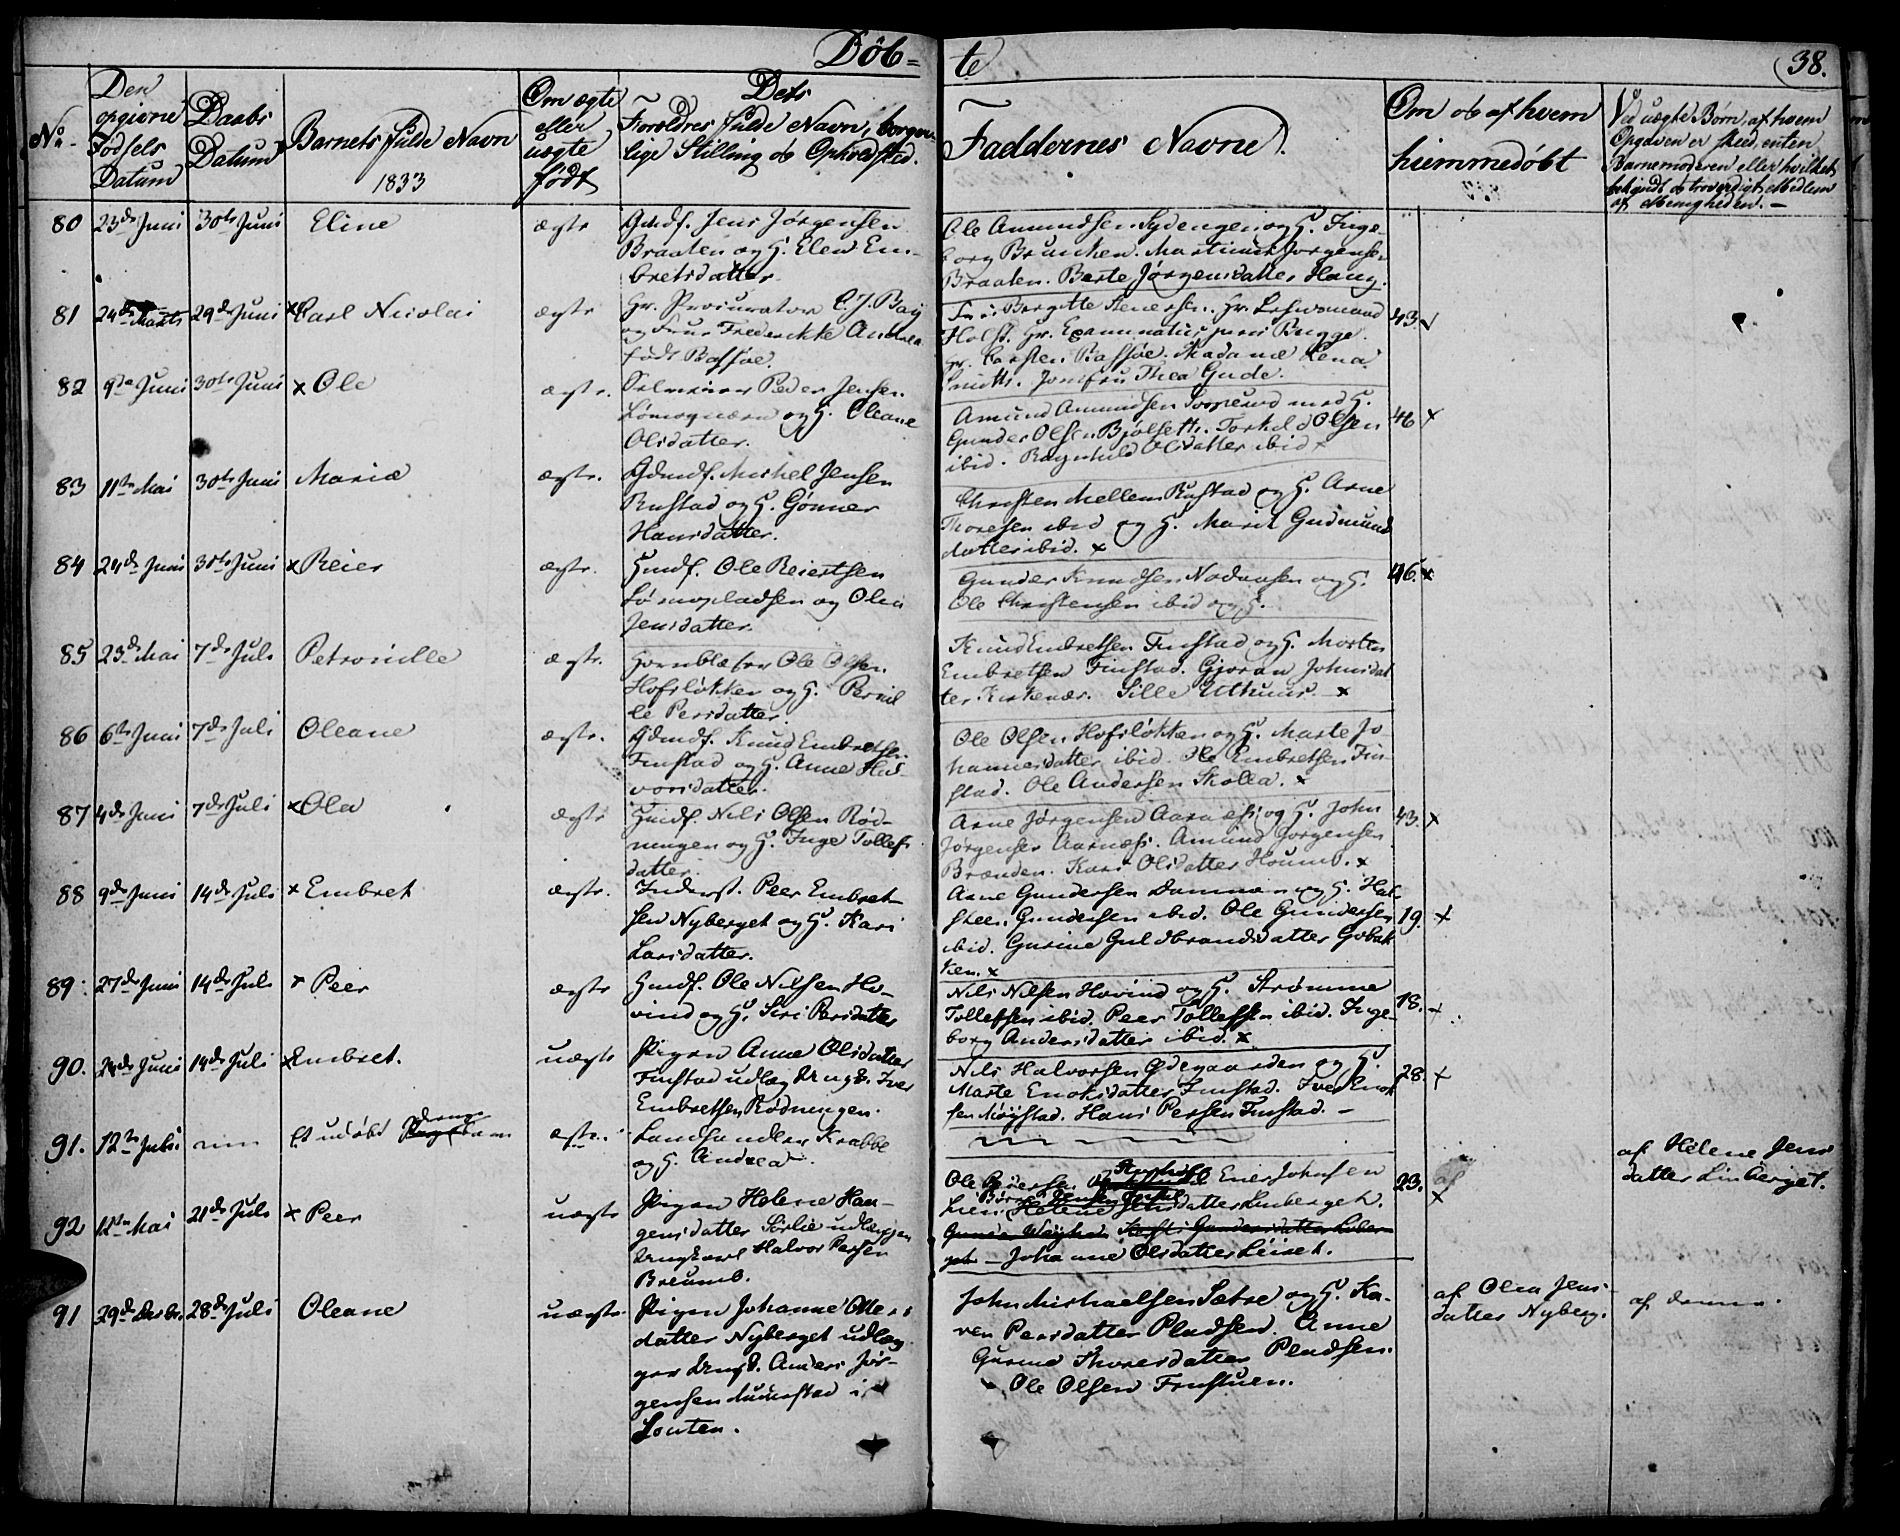 Döb= te
38.
No.
Den opgivne Födsels Datum
Daabs Datum
Barnets fulde Navn
1833
Om ægte eller uægte födt
Dets Forældres fulde Navn, borgerlige Stilling og Opholdsted.
Faddernes Navne.
Om og af hvem hiemmedöbt
Ved uægte Børn, af hvem Opgaven er skeed, enten Barnemoderen eller hvilket bekjendt og troværdigt Medlem af Menigheden. —
80 23de Juni 30te Juni Eline ægte
Gdmd. Jens Jørgensen
Braaten og H. Elen Em-
bretsdatter.
Ole Amundsen Sydengen og H. Inge-
borg Martinus Jørgensen
Braaten. Berte Jørgensdatter Haug.
81 24de Marts 29de Juni × Carl Nicolai ægte
Hr. Procurator C. J. Bay
og Frue Frederikke Andrea
födt Bassøe.
Bergitte Stenersen. Hr.
Holst. Hr. Examinatus juris Bugge.
Hr. Carsten Bassøe. Madame Lena
Jomfru Thea Gude.
43. √
82 9de Juni 30te Juni × Ole ægte.
Peder Jensen
og H. Oleane
Olsdatter.
Amund Amundsen med H.
Gunder Olsen Bjølseth. Torkild Olsen
ibid. Ragnhild Olsdatter ibid.
46 ×
83 11te Mai 30te Juni Maria ægte.
Gdmd. Mickel Jensen
Rustad og H. Gönner
Hansdatter.
Christen Mellem Rustad og H. Arne
Thoresen ibid og H. Marit Gudmunds
datter ibid. ×
84 24de Juni 30te Juni × Reier ægte.
Hmd. Ole Reiertsen
og Olea
Jensdatter.
Gunder Knudsen og H.
Ole Christensen ibid og H.
46. ×
85 23de Mai 7de Juli Petronille ægte.
Hornblæser Ole Olsen
Hofsløkken og H. Pernil
le Persdatter.
Knud Embretsen Finstad og H. Morten
Embretsen Finstad. Gjøran Johnsdat
ter Kirkenær. Sille Uthuus. ×
86 6te Juni 7de Juli Oleane ægte.
Gdmd. Knud Embretsen
Finstad og H. Anne Hal-
vorsdatter.
Ole Olsen Hofsløkken og H. Marte Jo-
hannesdatter ibid. Ole Embretsen Fin-
stad. Ole Andersen Skolla. ×
87 4de Juni 7de Juli × Ola ægte
Hmd. Nils Olsen Rød-
ningen og H. Inge Tollefs
datter.
Arne Jørgensen Aarnæs og H. John
Jørgensen Aarnæs. Amund Jørgensen
Brænden. Kari Olsdatter ×
43. ×
88 9de Juni 14de Juli × Embret ægte.
Inderst. Peer Embret-
sen Nyberget og H. Kari
Larsdatter.
Arne Gundersen og H. Hal-
steen Gundersen ibid. Ole Gundersen
ibid. Gurine Guldbrandsdatter Gobak
ken. ×
19. ×
89. 27de Juni 14de Juli × Peer ægte
Hmd. Ole Nilsen Ho-
vind og H. Siri Persdatter
Nils Nilsen Hovind og H. Strømme
Tollefsen ibid. Peer Tollefsen ibid. Inge-
borg Andersdatter ibid. ×
18. ×
90. 24de Juni 14de Juli × Embret. uægte
Pigen Anne Olsdatter
Finstad udlæg Ungk. Iver
Embretsen Rødningen.
Nils Halvorsen Ødegaarden og H.
Marte Enoksdatter Finstad. Iver Enok
sen Møystad. Hans Persen Finstad. —
28. ×
91. 12te Juli Et udöbt drengebarn ægte.
Landhandler Krabbe
og H. Andrea.
92 12te Mai 21de Juli × Peer uægte
Pigen Helene Hau-
gensdatter Sørlie udlægger
Ungkarl Halvor Persen
Breumb.
Ole Einer Johnsen
Lien. Helene Jensdatter Linberget.
Johanne Olsdatter
23. ×
af
af Helene Jens
datter Linberget.
91 29de Decbr. 28de Juli Oleane uægte.
Pigen Johanne Olles
datter Nyberget udlæg-
ger Ungk. Anders Jør-
gensen i
Løuten.
John Michaelsen Sætre og H. Ka-
ren Persdatter Pladsen. Anne
Gurine Thoresdatter Pladsen.
Ole Olsen Fonstuen.
af Olea Jens-
datter Nyberg.
af denne.